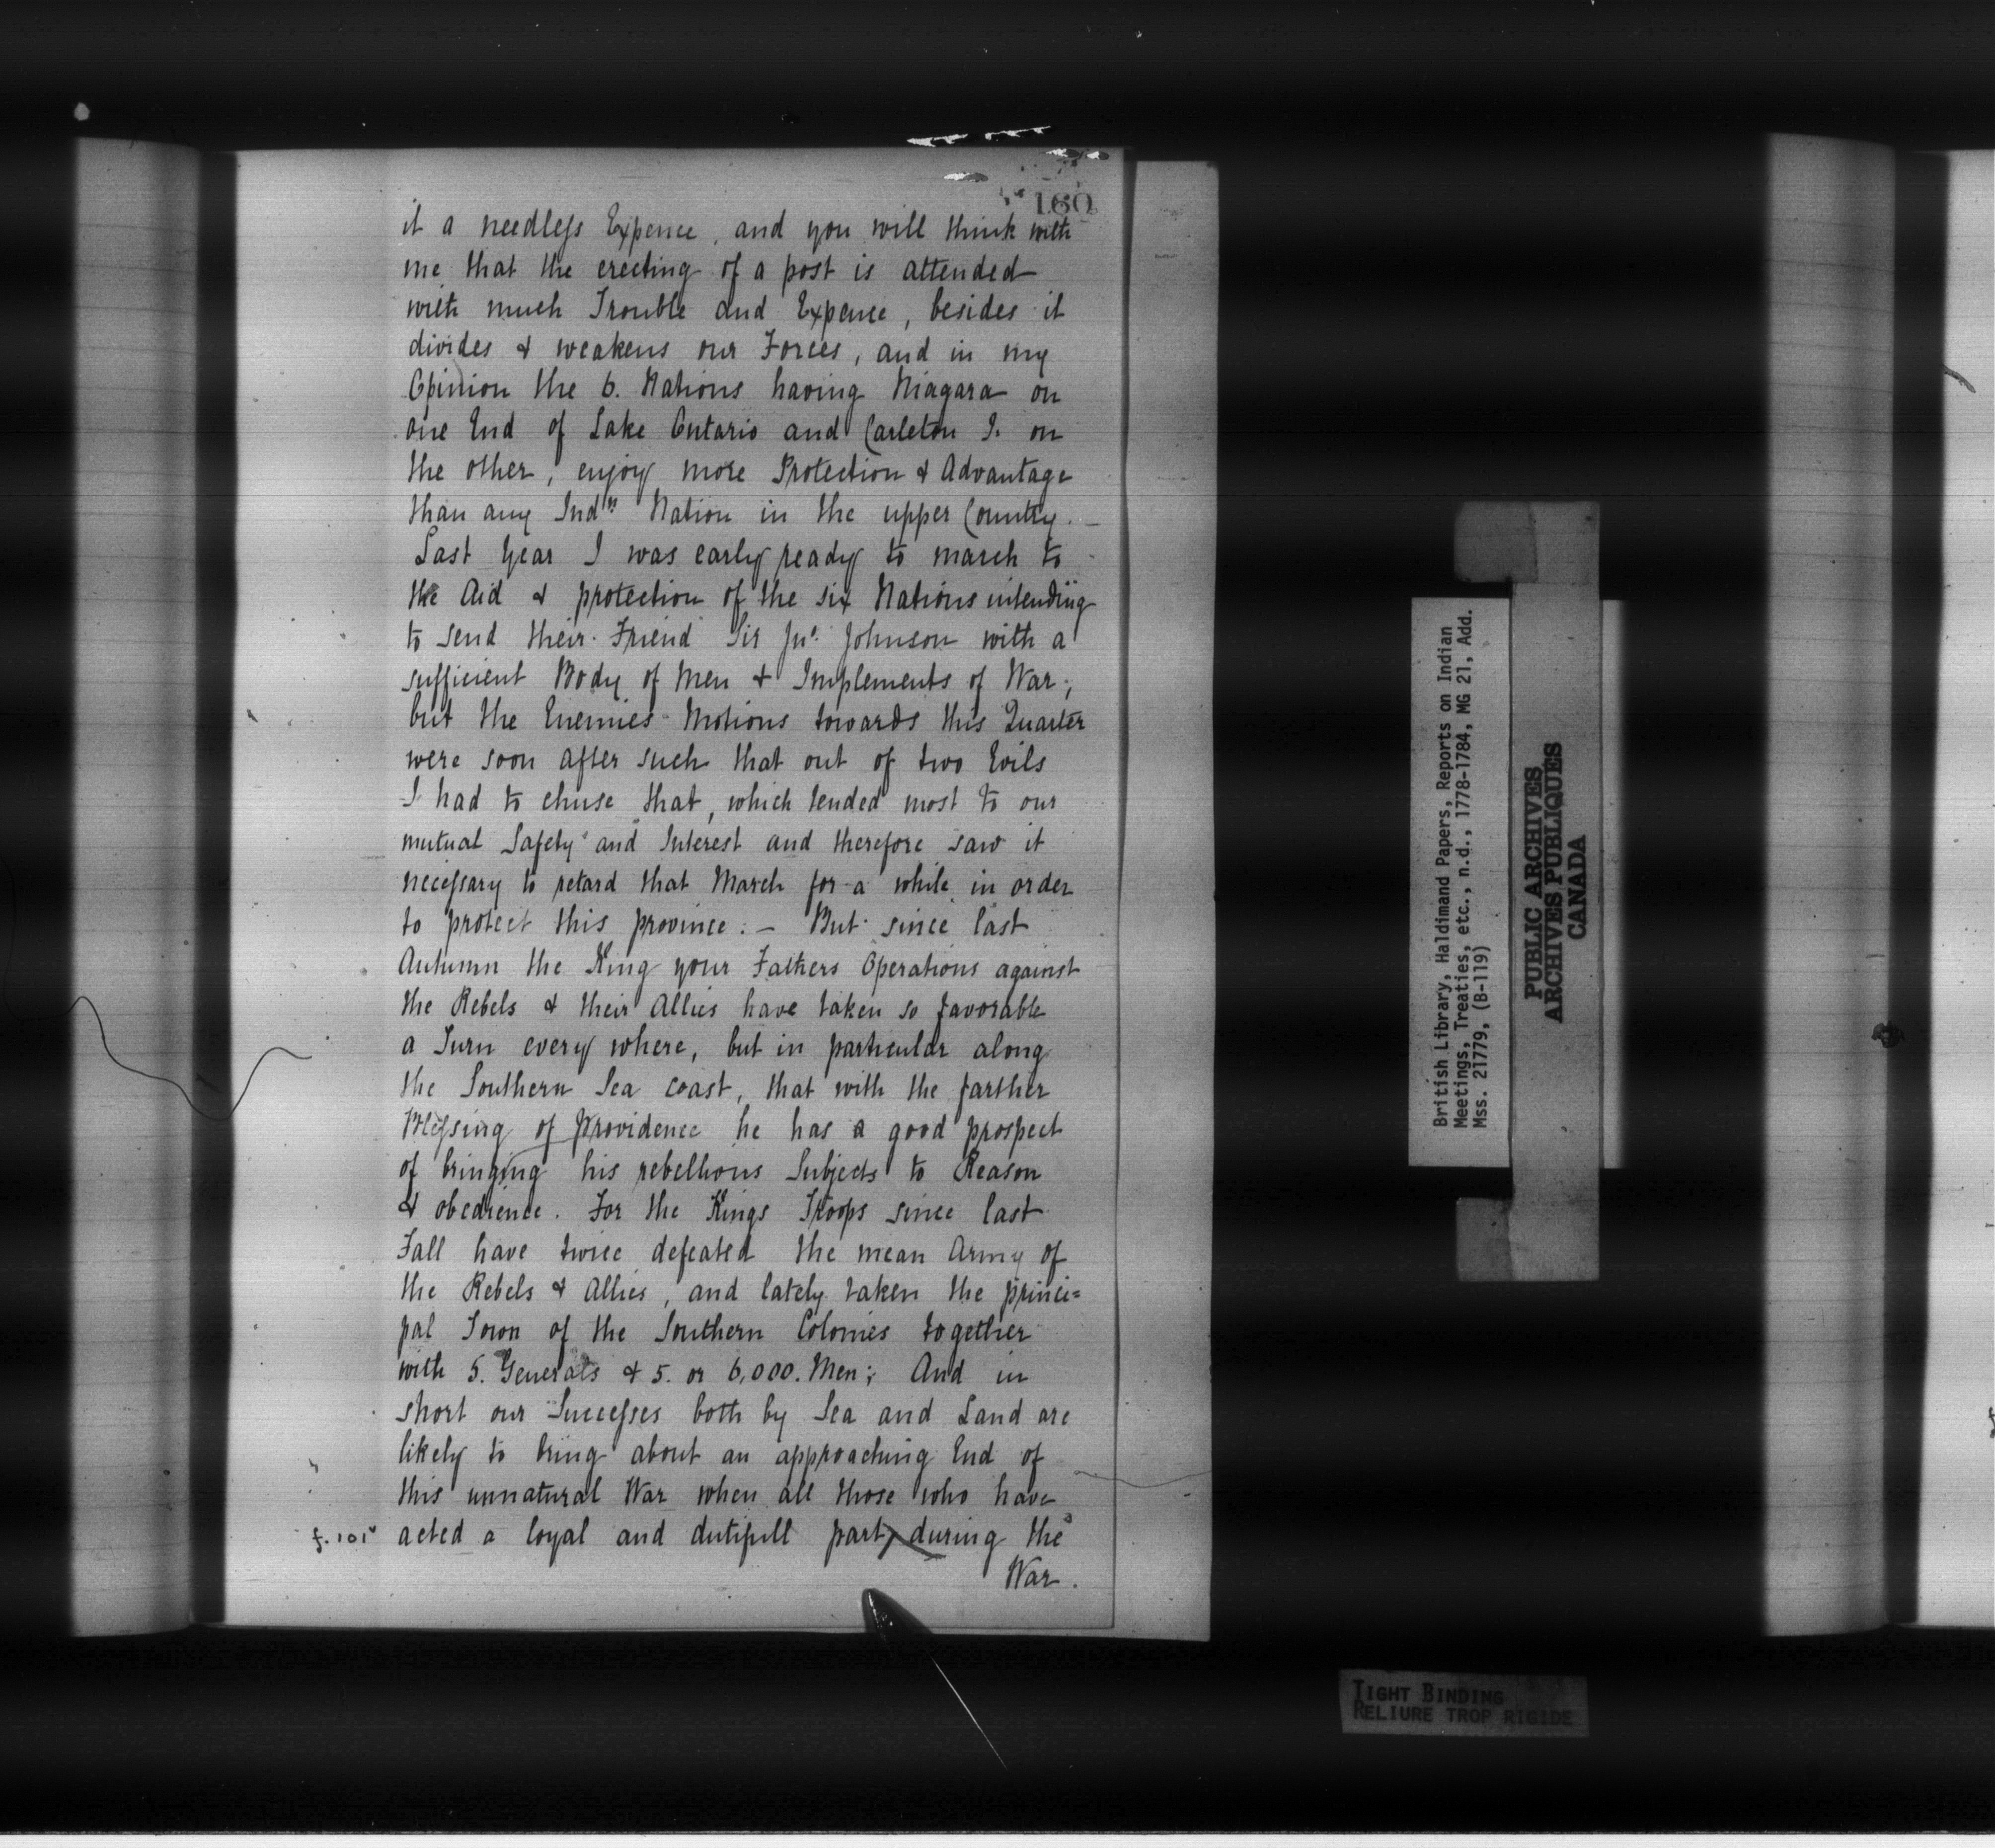 160
it a needless Expence, and you will think with
me that the erecting of a post is attended
with much Trouble and Expence, besides it
divides & weakens our Forces, and in my
Opinion the 6. Nations having Niagara on
one End of Lake Ontario and Carleton I. on
the other, enjoy more Protection & Advantage
than any Indn. Nation in the upper Country. —
Last Year I was early ready to march to
the Aid & protection of the six Nations intending
to send their Friend Sir Jno. Johnson with a
sufficient Body of Men & Implements of War;
but the Enemies Motions towards this Quarter
were soon after such that out of two Evils
I had to chuse that, which tended most to our
mutual Safety and Interest and therefore saw it
necessary to retard that March for a while in order
to protect this province. — But since last
Autumn the King your Fathers Operations against
the Rebels & their Allies have taken so favorable
a Turn every where, but in particular along
the Southern Sea coast, that with the farther
Blessing of Providence he has a good prospect
of bringing his rebellious Subjects to Reason
& obedience. For the Kings Troops since last
Fall have twice defeated the mean Army of
the Rebels & Allies, and lately taken the princi=
pal Town of the Southern Colonies together
with 5. Generals & 5. or 6,000. Men; And in
short our Successes both by Sea and Land are
likely to bring about an approaching End of
this unnatural War when all those who have
f. 101v acted a loyal and dutifull part, during the
War.
British Library, Haldimand Papers, Reports on Indian
Meetings, Treaties, etc., n.d., 1778-1784, MG 21, Add.
Mss. 21779, (B-119)
PUBLIC ARCHIVES
ARCHIVES PUBLIQUES
CANADA
TIGHT BINDING
RELIURE TROP RIGIDE